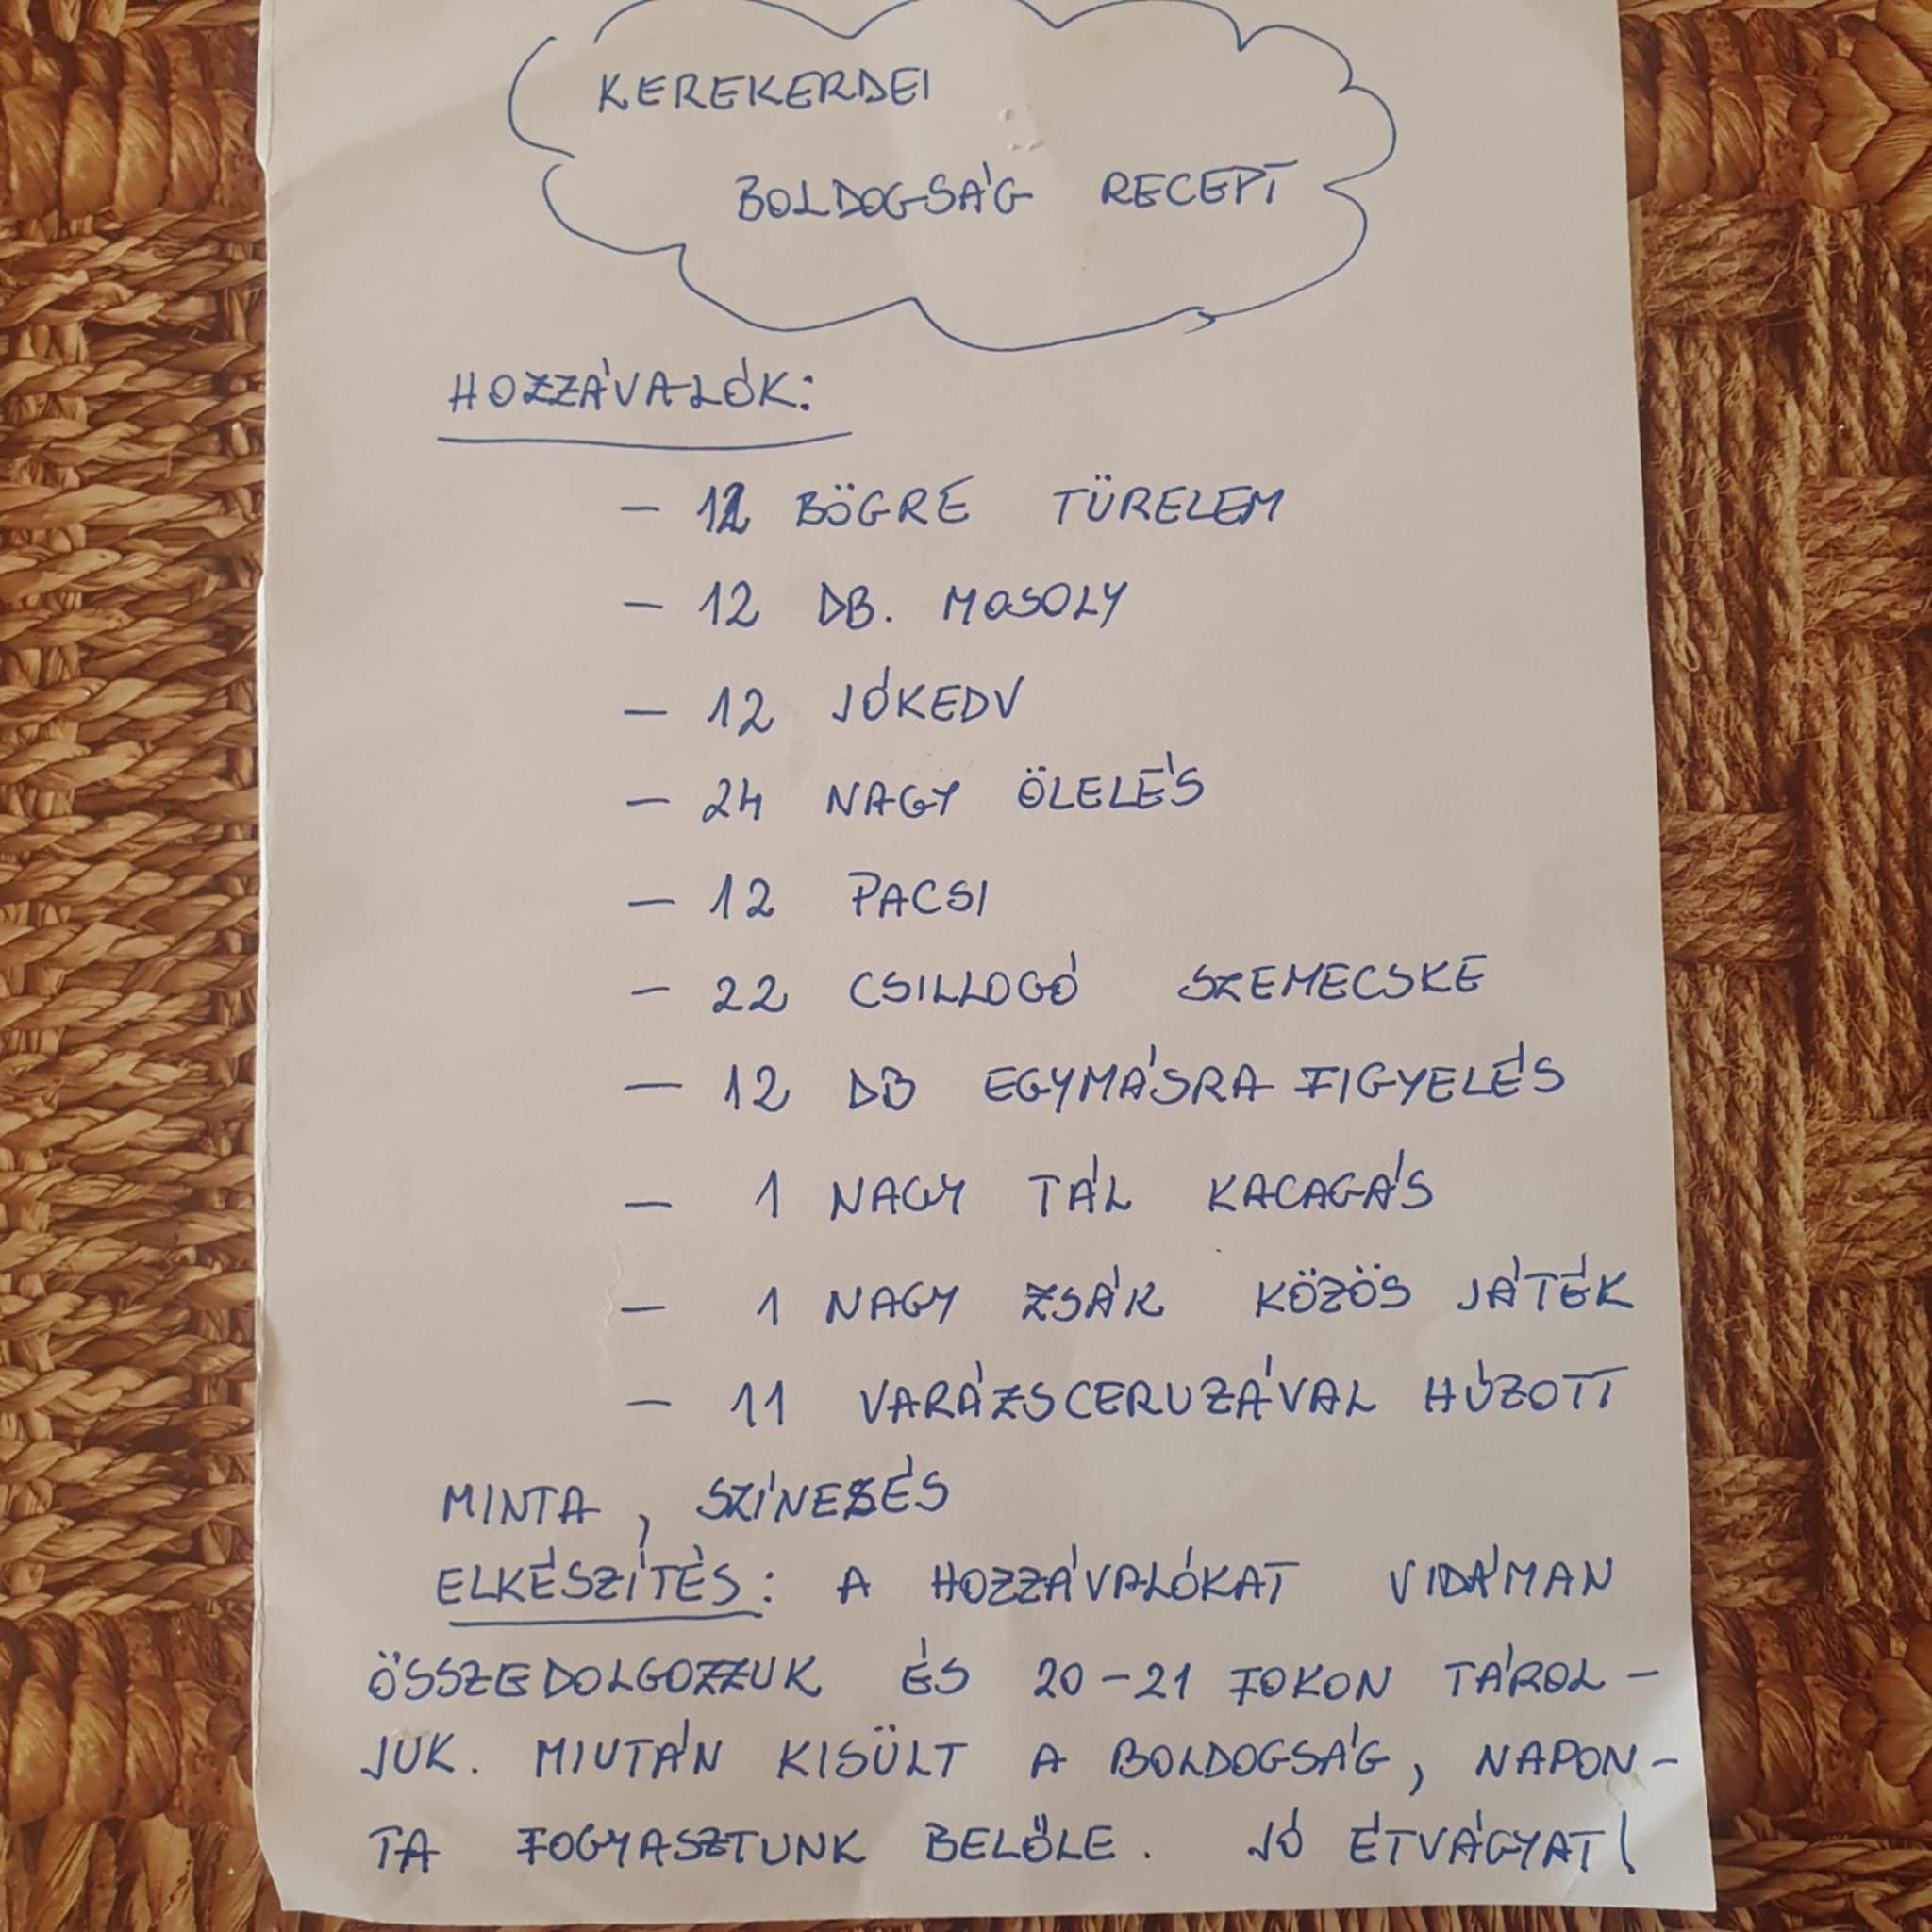 KEREKERDEI
BOLDOGSÁG RECEPT
HOZZÁVALÓK:
– 12 BÖGRE TÜRELEM
– 12 DB. MOSOLY
– 12 JÓKEDV
– 24 NAGY ÖLELÉS
– 12 PACSI
– 22 CSILLOGÓ SZEMECSKE
– 12 DB EGYMÁSRA FIGYELÉS
– 1 NAGY TÁL KACAGÁS
– 1 NAGY ZSÁK KÖZÖS JÁTÉK
– 11 VARÁZSCERUZÁVAL HÚZOTT
MINTA, SZÍNEZÉS
ELKÉSZÍTÉS: A HOZZÁVALÓKAT VIDÁMAN
ÖSSZEDOLGOZZUK ÉS 20-21 FOKON TÁROL-
JUK. MIUTÁN KISÜLT A BOLDOGSÁG, NAPON-
TA FOGYASZTUNK BELŐLE. JÓ ÉTVÁGYAT!